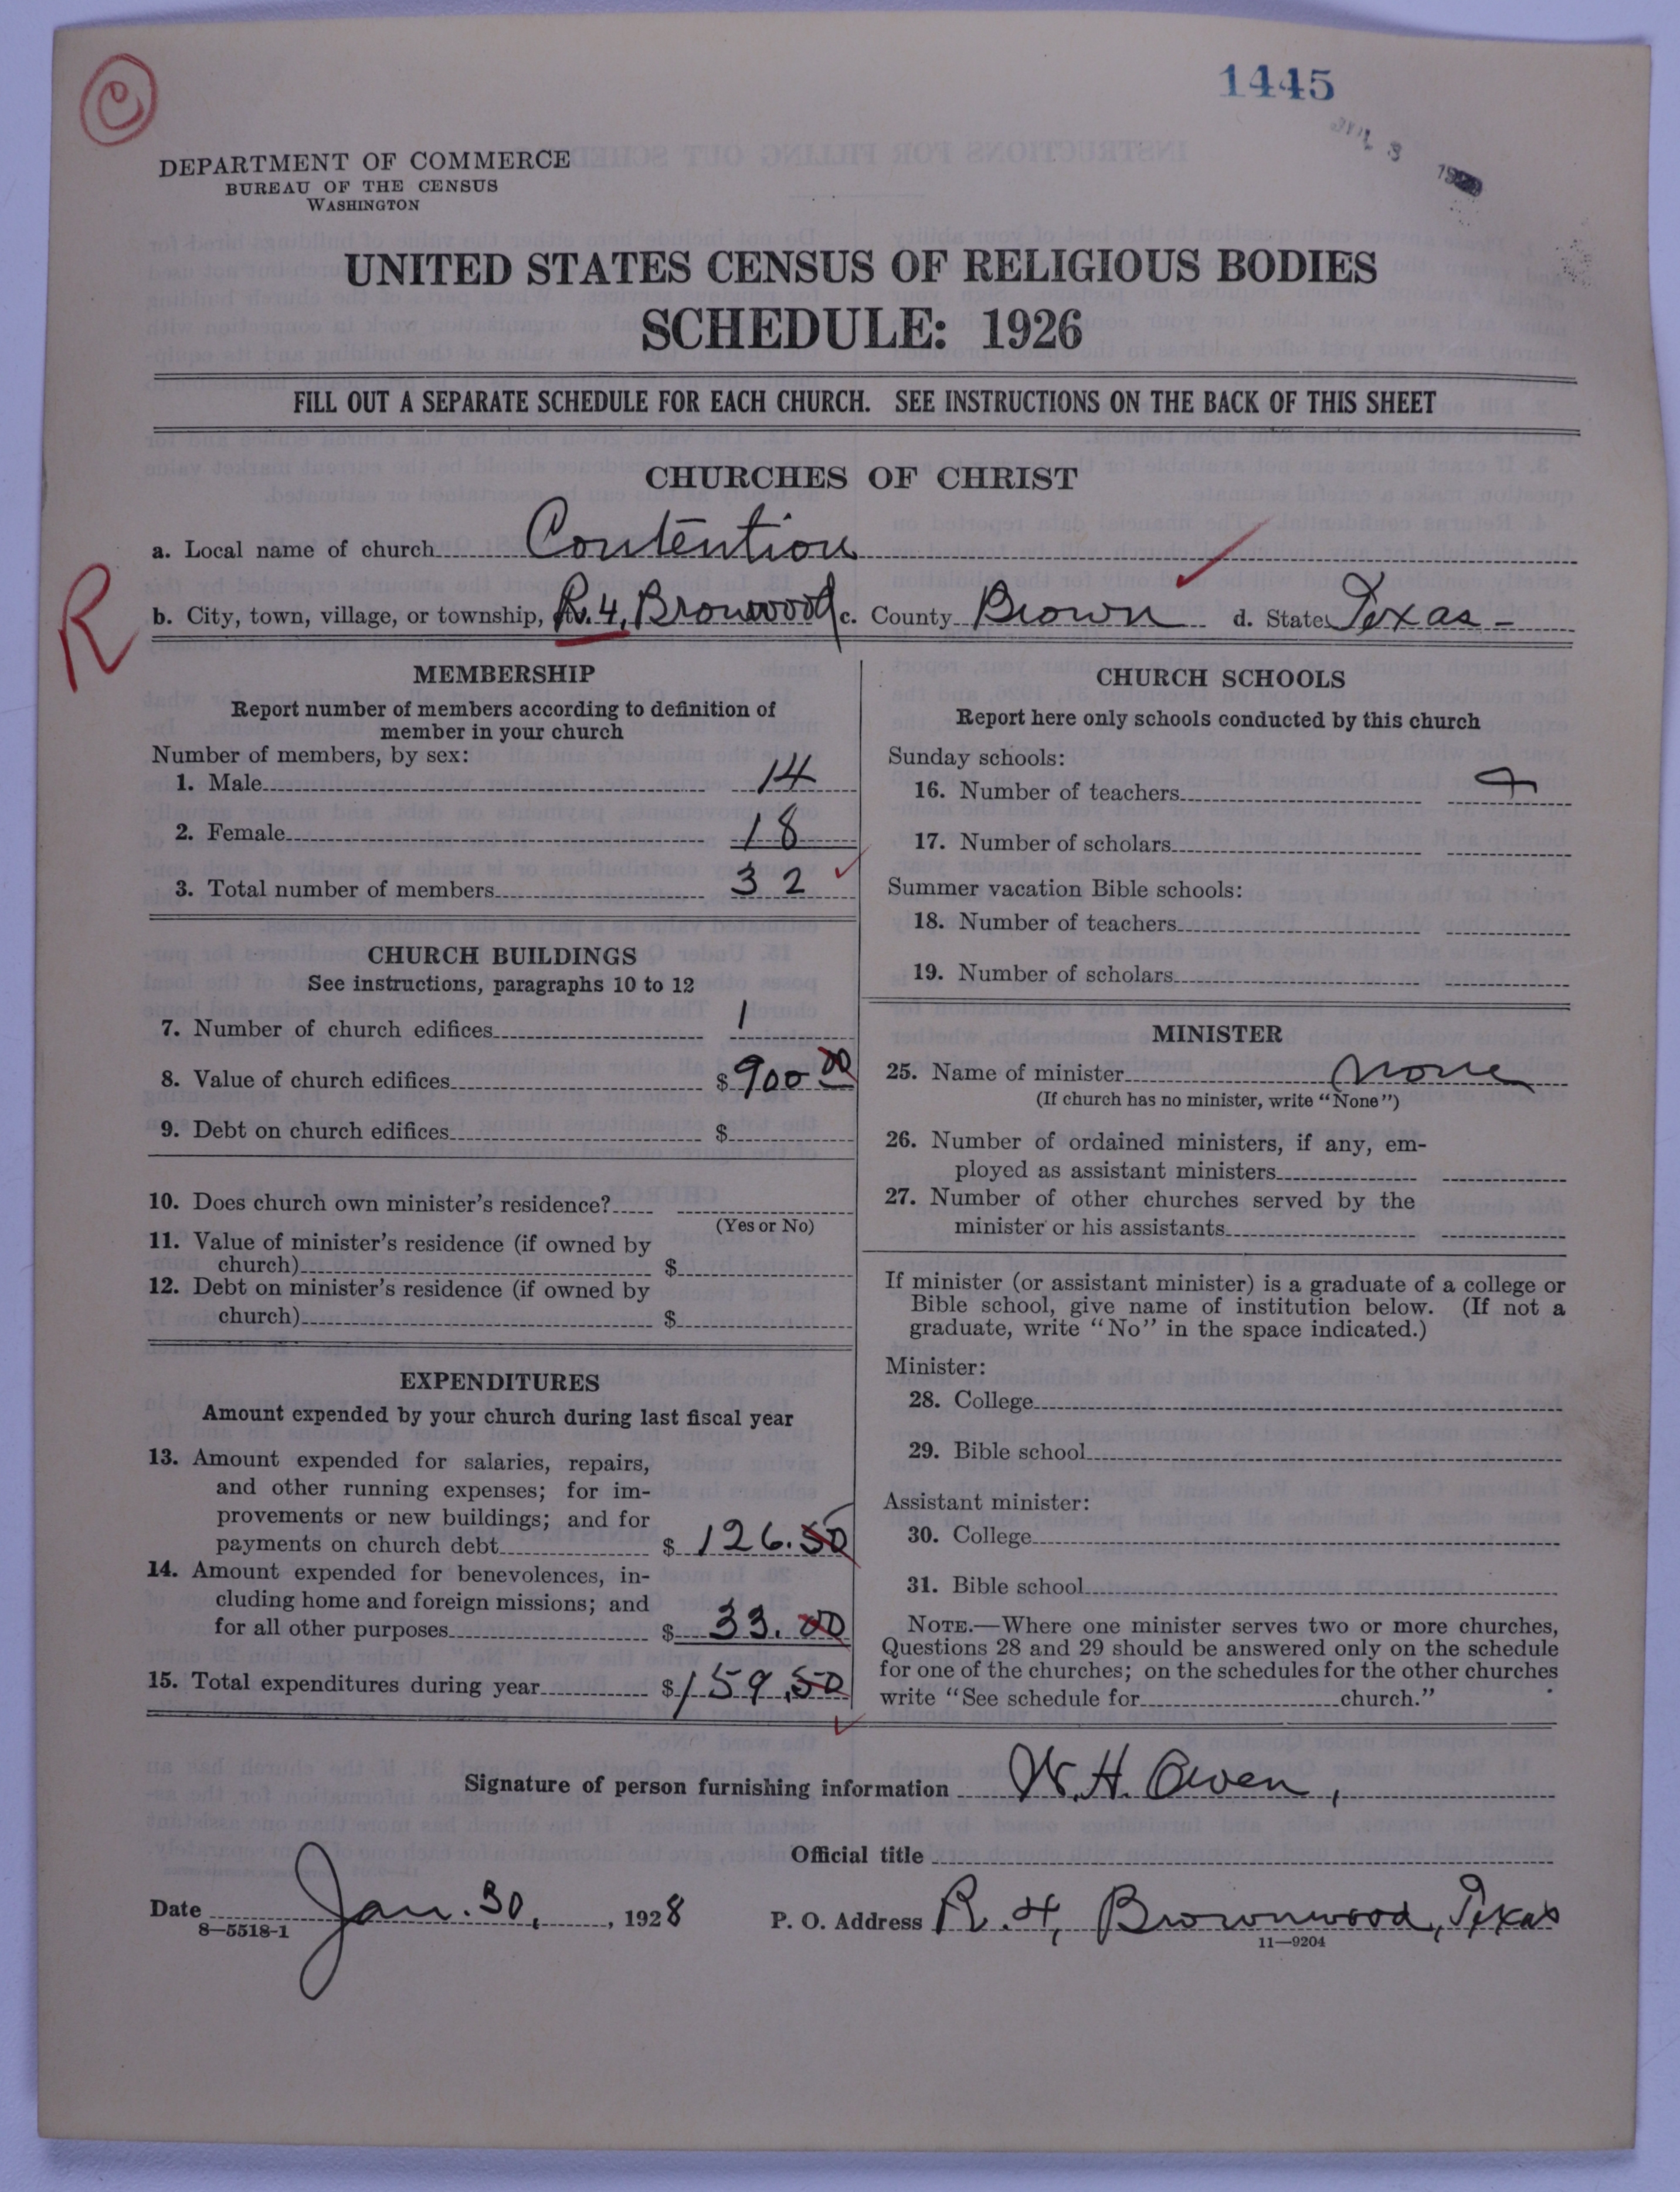 1445
DEPARTMENT OF COMMERCE
BUREAU OF THE CENSUS
WASHINGTON
UNITED STATES CENSUS OF RELIGIOUS BODIES
SCHEDULE: 1926
FILL OUT A SEPARATE SCHEDULE FOR EACH CHURCH. SEE INSTRUCTIONS ON THE BACK OF THIS SHEET
CHURCHES OF CHRIST
a. Local name of church Contention
R
b. City, town, village, or township, R. 4, Bronwood c. County Brown d. State Texas -
MEMBERSHIP
Report number of members according to definition of
member in your church
Number of members, by sex:
1. Male 14
2. Female 18
3. Total number of members 32
CHURCH BUILDINGS
See instructions, paragraphs 10 to 12
7. Number of church edifices 1
8. Value of church edifices $ 900 00
9. Debt on church edifices $
10. Does church own minister's residence?
(Yes or No)
11. Value of minister's residence (if owned by
church) $
12. Debt on minister's residence (if owned by
church) $
EXPENDITURES
Amount expended by your church during last fiscal year
13. Amount expended for salaries, repairs,
and other running expenses; for im-
provements or new buildings; and for
payments on church debt $ 126.50
14. Amount expended for benevolences, in-
cluding home and foreign missions; and
for all other purposes $ 33.00
15. Total expenditures during year $ 159.50
CHURCH SCHOOLS
Report here only schools conducted by this church
Sunday schools:
16. Number of teachers
17. Number of scholars
Summer vacation Bible schools:
18. Number of teachers
19. Number of scholars
MINISTER
25. Name of minister None
(If church has no minister, write "None")
26. Number of ordained ministers, if any, em-
ployed as assistant ministers
27. Number of other churches served by the
minister or his assistants
If minister (or assistant minister) is a graduate of a college or
Bible school, give name of institution below. (If not a
graduate, write "No" in the space indicated.)
Minister:
28. College
29. Bible school
Assistant minister:
30. College
31. Bible school
NOTE.—Where one minister serves two or more churches,
Questions 28 and 29 should be answered only on the schedule
for one of the churches; on the schedules for the other churches
write "See schedule for church."
Signature of person furnishing information W. H. Owen,
Official title
Date Jan. 30, , 1928 P. O. Address R. 4, Brownwood, Texas
8—5518-1 11—9204